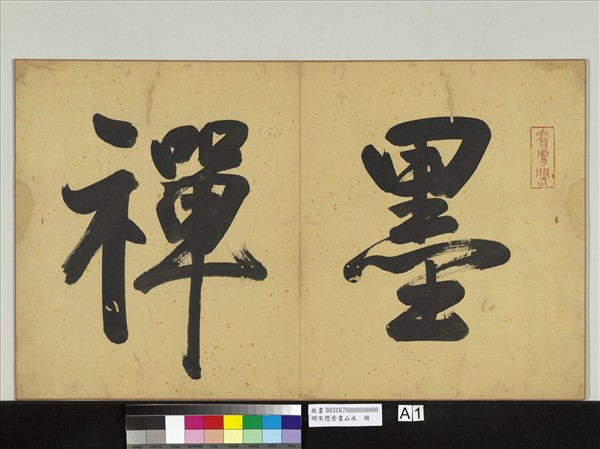 墨禪
故畫 003167N000000000
明宋懋晉畫山水　冊
A1